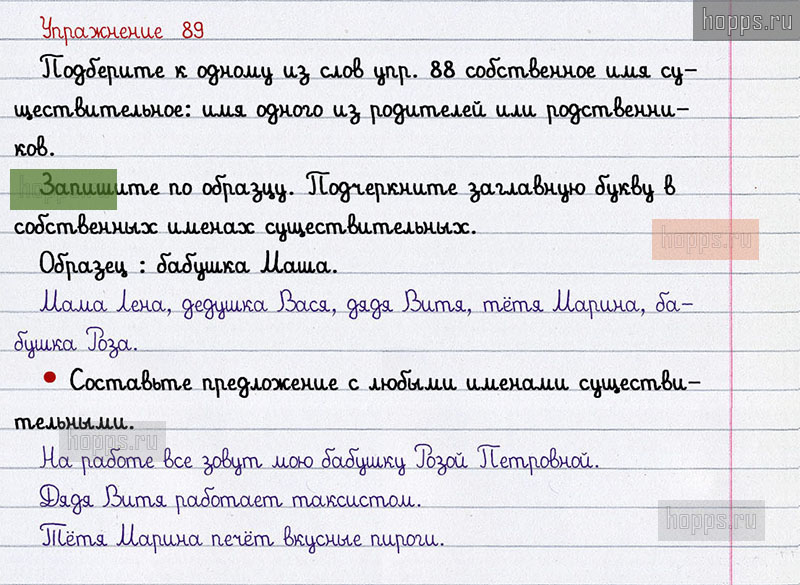 hopps.ru
Упражнение 89
Подберите к одному из слов упр. 88 собственное имя су-
ществительное: имя одного из родителей или родственни-
ков.
Запишите по образцу. Подчеркните заглавную букву в
hopps.ru
собственных именах существительных.
hopps.ru
Образец : бабушка Маша.
Мама Лена, дедушка Вася, дядя Витя, тётя Марина, ба-
бушка Роза.
• Составьте предложение с любыми именами существи-
тельными.
hopps.ru
На работе все зовут мою бабушку Розой Петровной.
Дядя Витя работает таксистом.
hopps.ru
Тётя Марина печёт вкусные пироги.